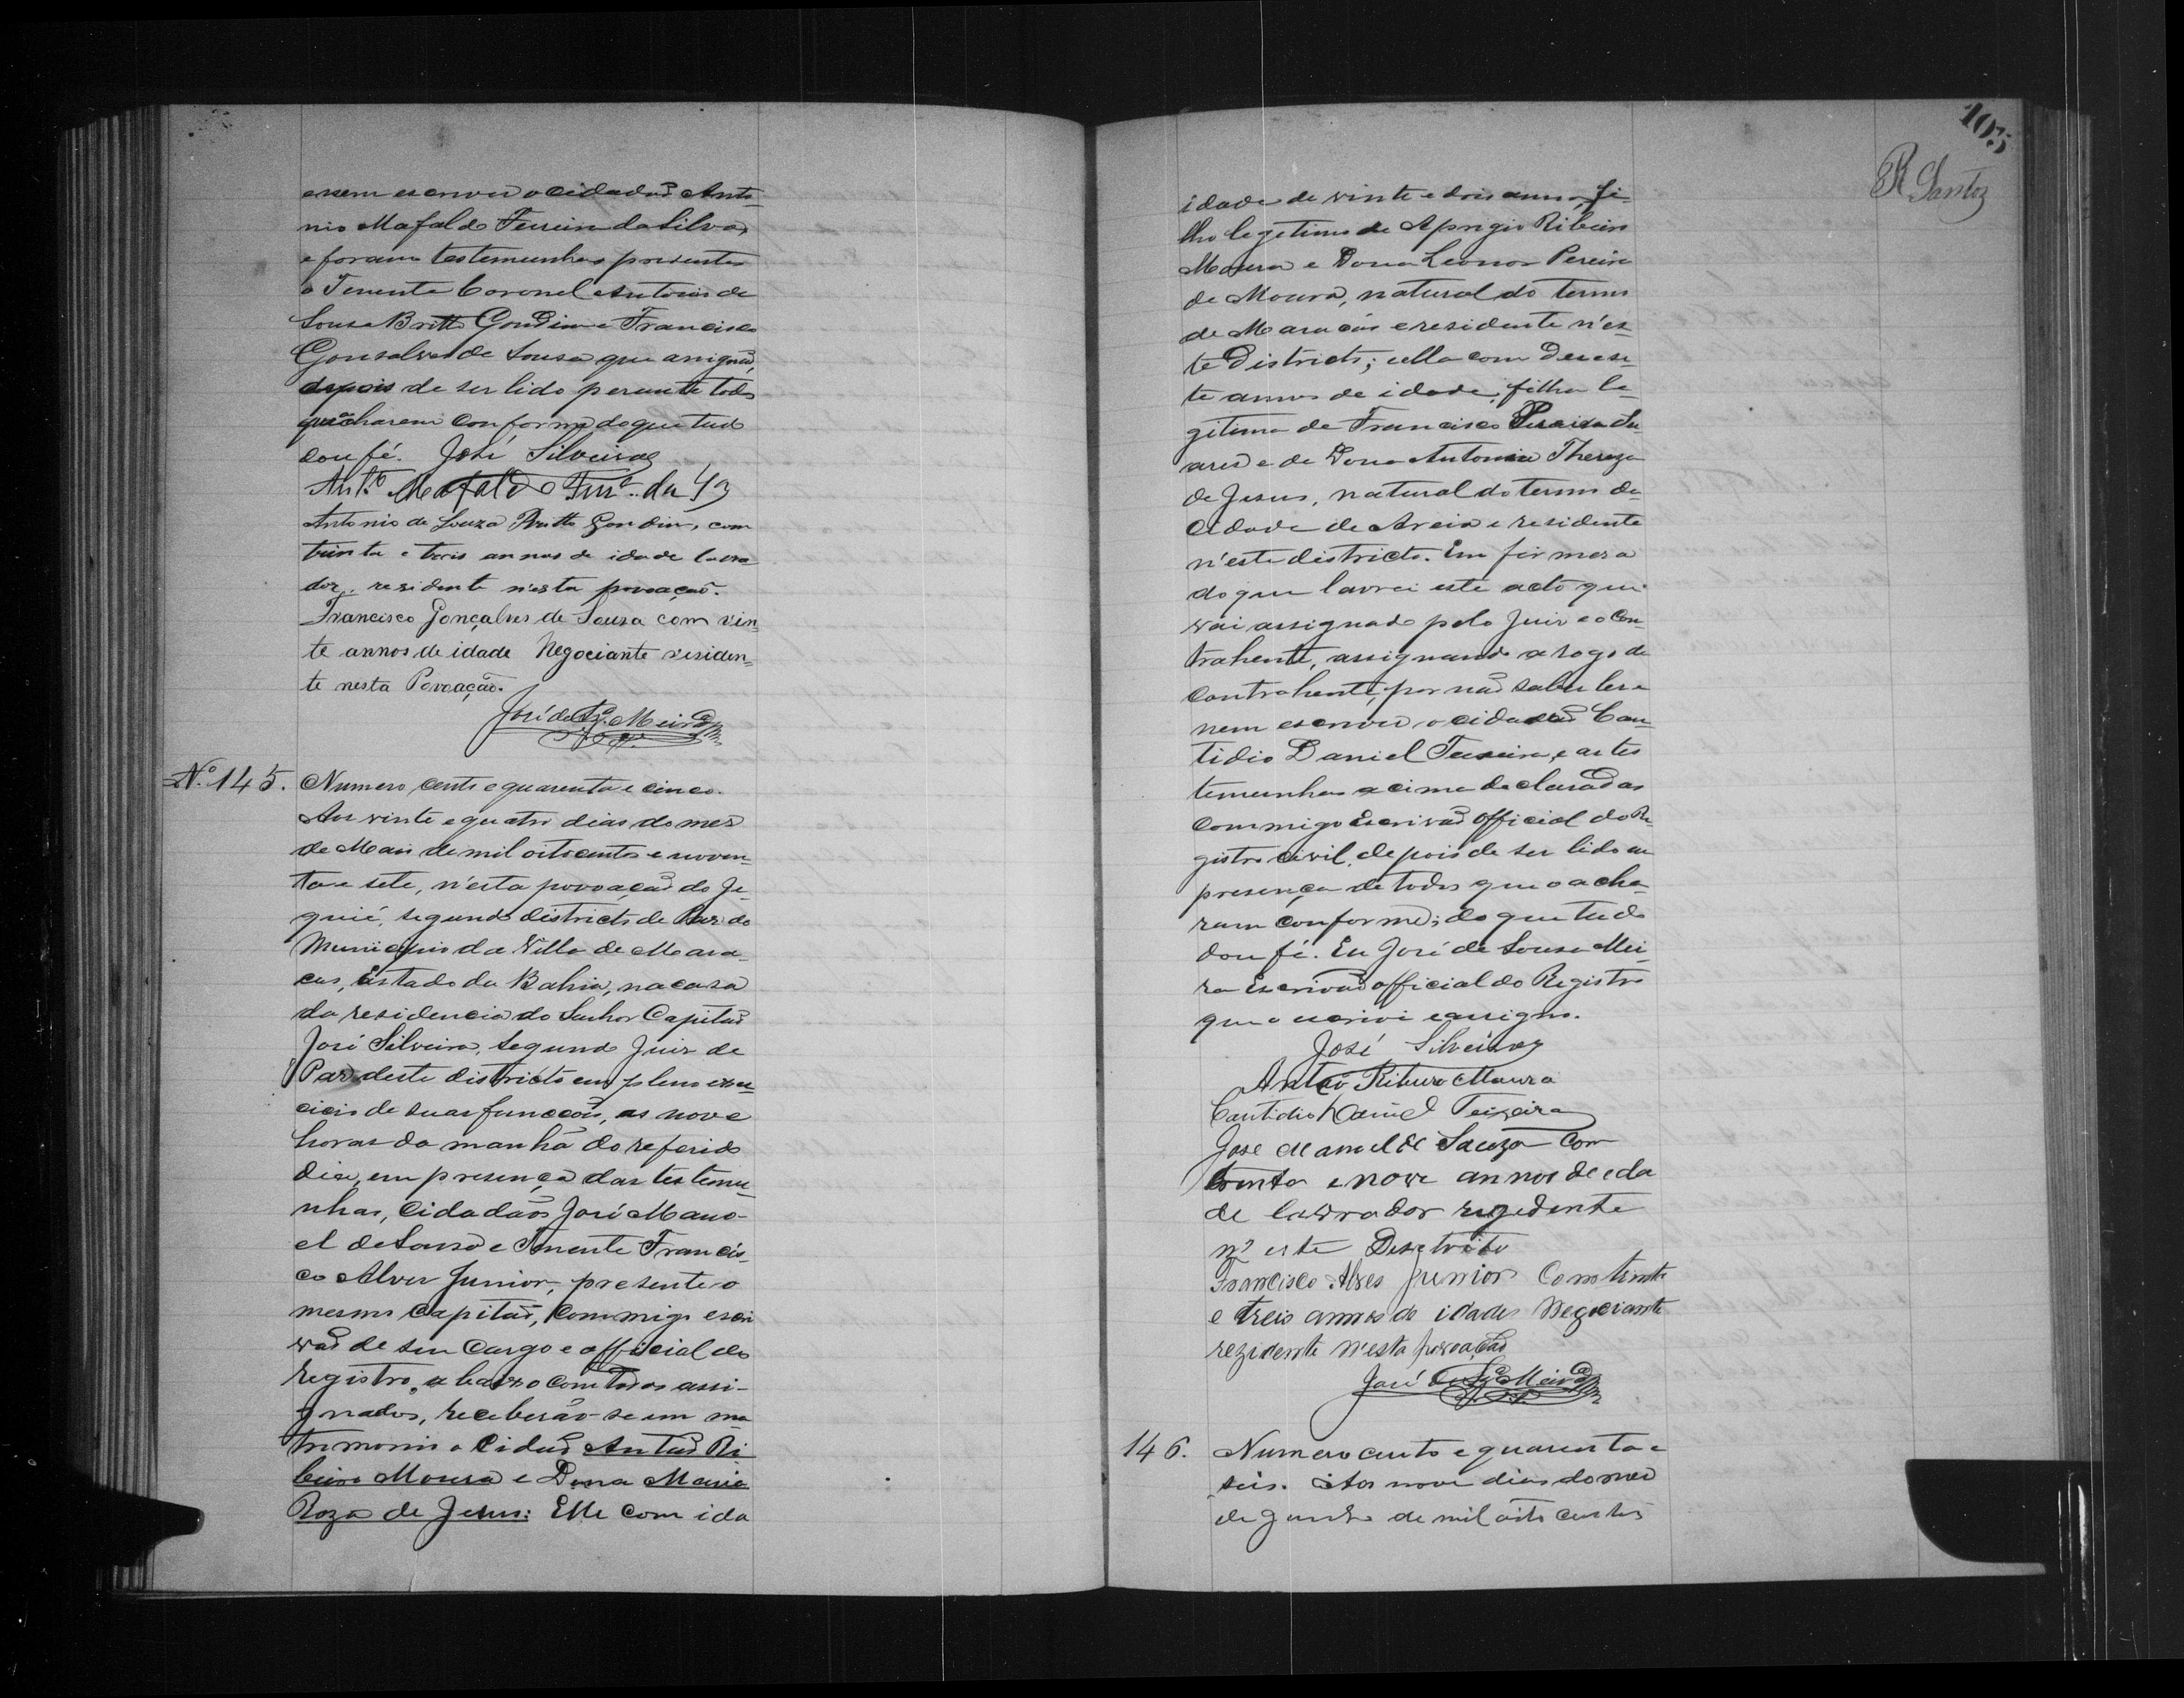 e nem escrever o cidadaõ Anto-
nio Mafaldo Ferreira da Silva,
e foram testemunhas presentes
o Tenente Coronel Antonio de
Sousa Britto Gondim e Francisco
Gonsalves de Sousa que assignaõ,
depois de ser lido perante todos
que acharem conforme do que tudo
dou fé. José Silveira
Antº Mafaldo Ferrª da Sª
Antonio de Souza Britto Gondim, com
trinta e treis annos de idade lavra
dor, residente n'esta povoaçaõ.
Francisco Gonçalves de Sousa com vin-
te annos de idade Negociante residen-
te nesta Povoação.
José de Sza. Meira
Nº 145. Numero cento e quarenta e cinco.
Aos vinte e quatro dias do mes
de Maio de mil oitocentos e noven-
ta e sete, n'esta povoaçaõ do Je-
quié, segundo districto de Paz do
Municipio da Villa de Mara-
cas, Estado da Bahia, na casa
da residencia do Senhor Capitaõ
José Silveira, segundo Juiz de
Paz deste districto em pleno exer-
cicio de suas funccoẽs, as nove
horas da manhã do referido
dia, em presença das testemu-
nhas, Cidadãos José Mano-
el de Sousa e Tenente Francis-
co Alves Junior, presente o
mesmo Capitaõ, commigo escri
vaõ de seu cargo e official do
registro, abaixo com todos assi-
gnados, receberão-se em ma
trimonio o Cidaõ Antaõ Ri
beiro Moura e Dona Maria
Roza de Jesus: Elle com ida
105
R Santos
idade de vinte e dois annos, fi-
lho legitimo de Aprigio Ribeiro
Moura e Dona Leonor Pereira
de Moura, natural do termo
de Maracás e residente n'es-
te Districto; ella com desese-
te annos de idade, filha le-
gitima de Francisco Pereira Su-
ares e de Dona Antonia Thereza
de Jesus, natural do termo da
Cidade de Areia e residente
n'este districto. Em firmeza
do que lavrei este acto que
vai assignado pelo Juiz e o Con-
trahente, assignando a rogo da
contrahente, por naõ saber ler e
nem escrever o cidadaõ Can-
tidio Daniel Teixeira, e as tes
temunhas acima declaradas
commigo Escrivaõ Official do Re-
gistro civil, depois de ser lido em
presença de todos que o acha-
ram conforme; do que tudo
dou fé. Eu José de Sousa Mei-
ra Escrivaõ official do Registro
que o escrivi e assigno.
José Silveira
Antão Ribeiro Moura
Cantidio Daniel Teixeira
Jose Manuel de Souza com
trinta e nove annos de eda
de lavrador rezedente
n'este Desetrito
Francisco Alves Junior Com trinta
e treis annos de idades Negociante
rezidente n'esta povoação
José de Sza Meira
146. Numero cento e quarenta e
seis. Aos nove dias do mes
de Junho de mil oito centos